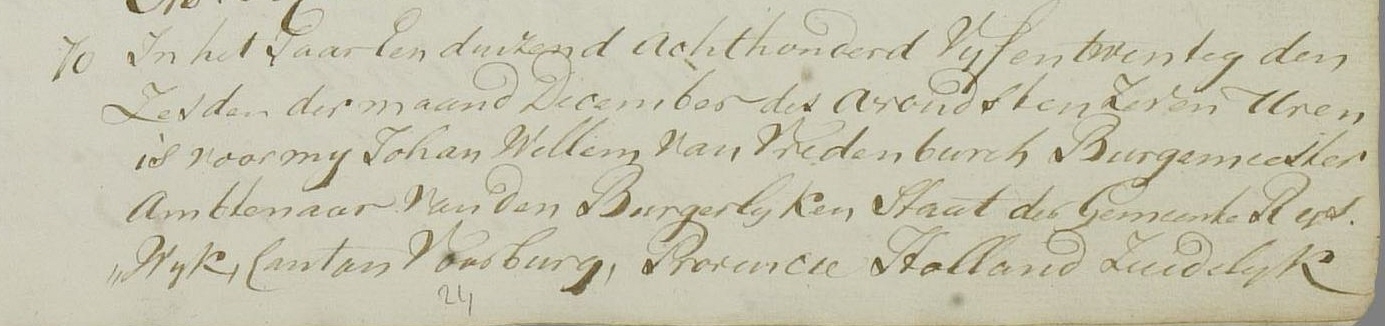 70 In het Jaar Een duizend Achthonderd Vyfentwenteg den
Zesden der maand December des Avonds ten Zeven Uren
is voor my Johan Willem Van Vredenburch Burgemeester
Ambtenaar Van den Burgerlyken Staat der Gemeente Rys.
„Wyk, Canton Voorburg, Provincie Holland Zuidelyk
24